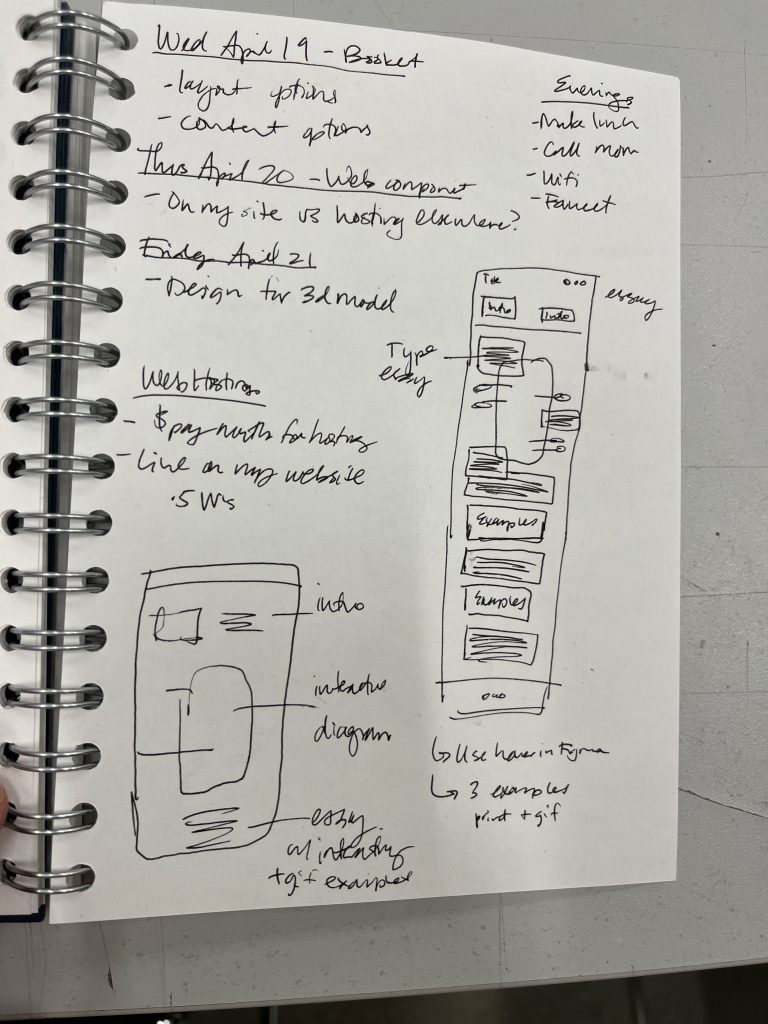 Wed April 19 - Booklet
- layout options
- content options
Thus April 20 - Web component
- On my site vs hosting elsewhere?
Friday April 21
- Design for 3d model
Evenings
- Make lunch
- Call mom
- Wifi
- Faucet
Web Hosting
- $ pay month for hosting
- Live on my website
· 5 W's
intro
interactive
diagram
essay
w/
+ gif examples
Title
essay
Intro
Intro
Type
essay
Examples
Examples
↳ Use hover in Figma
↳ 3 examples
print + gif